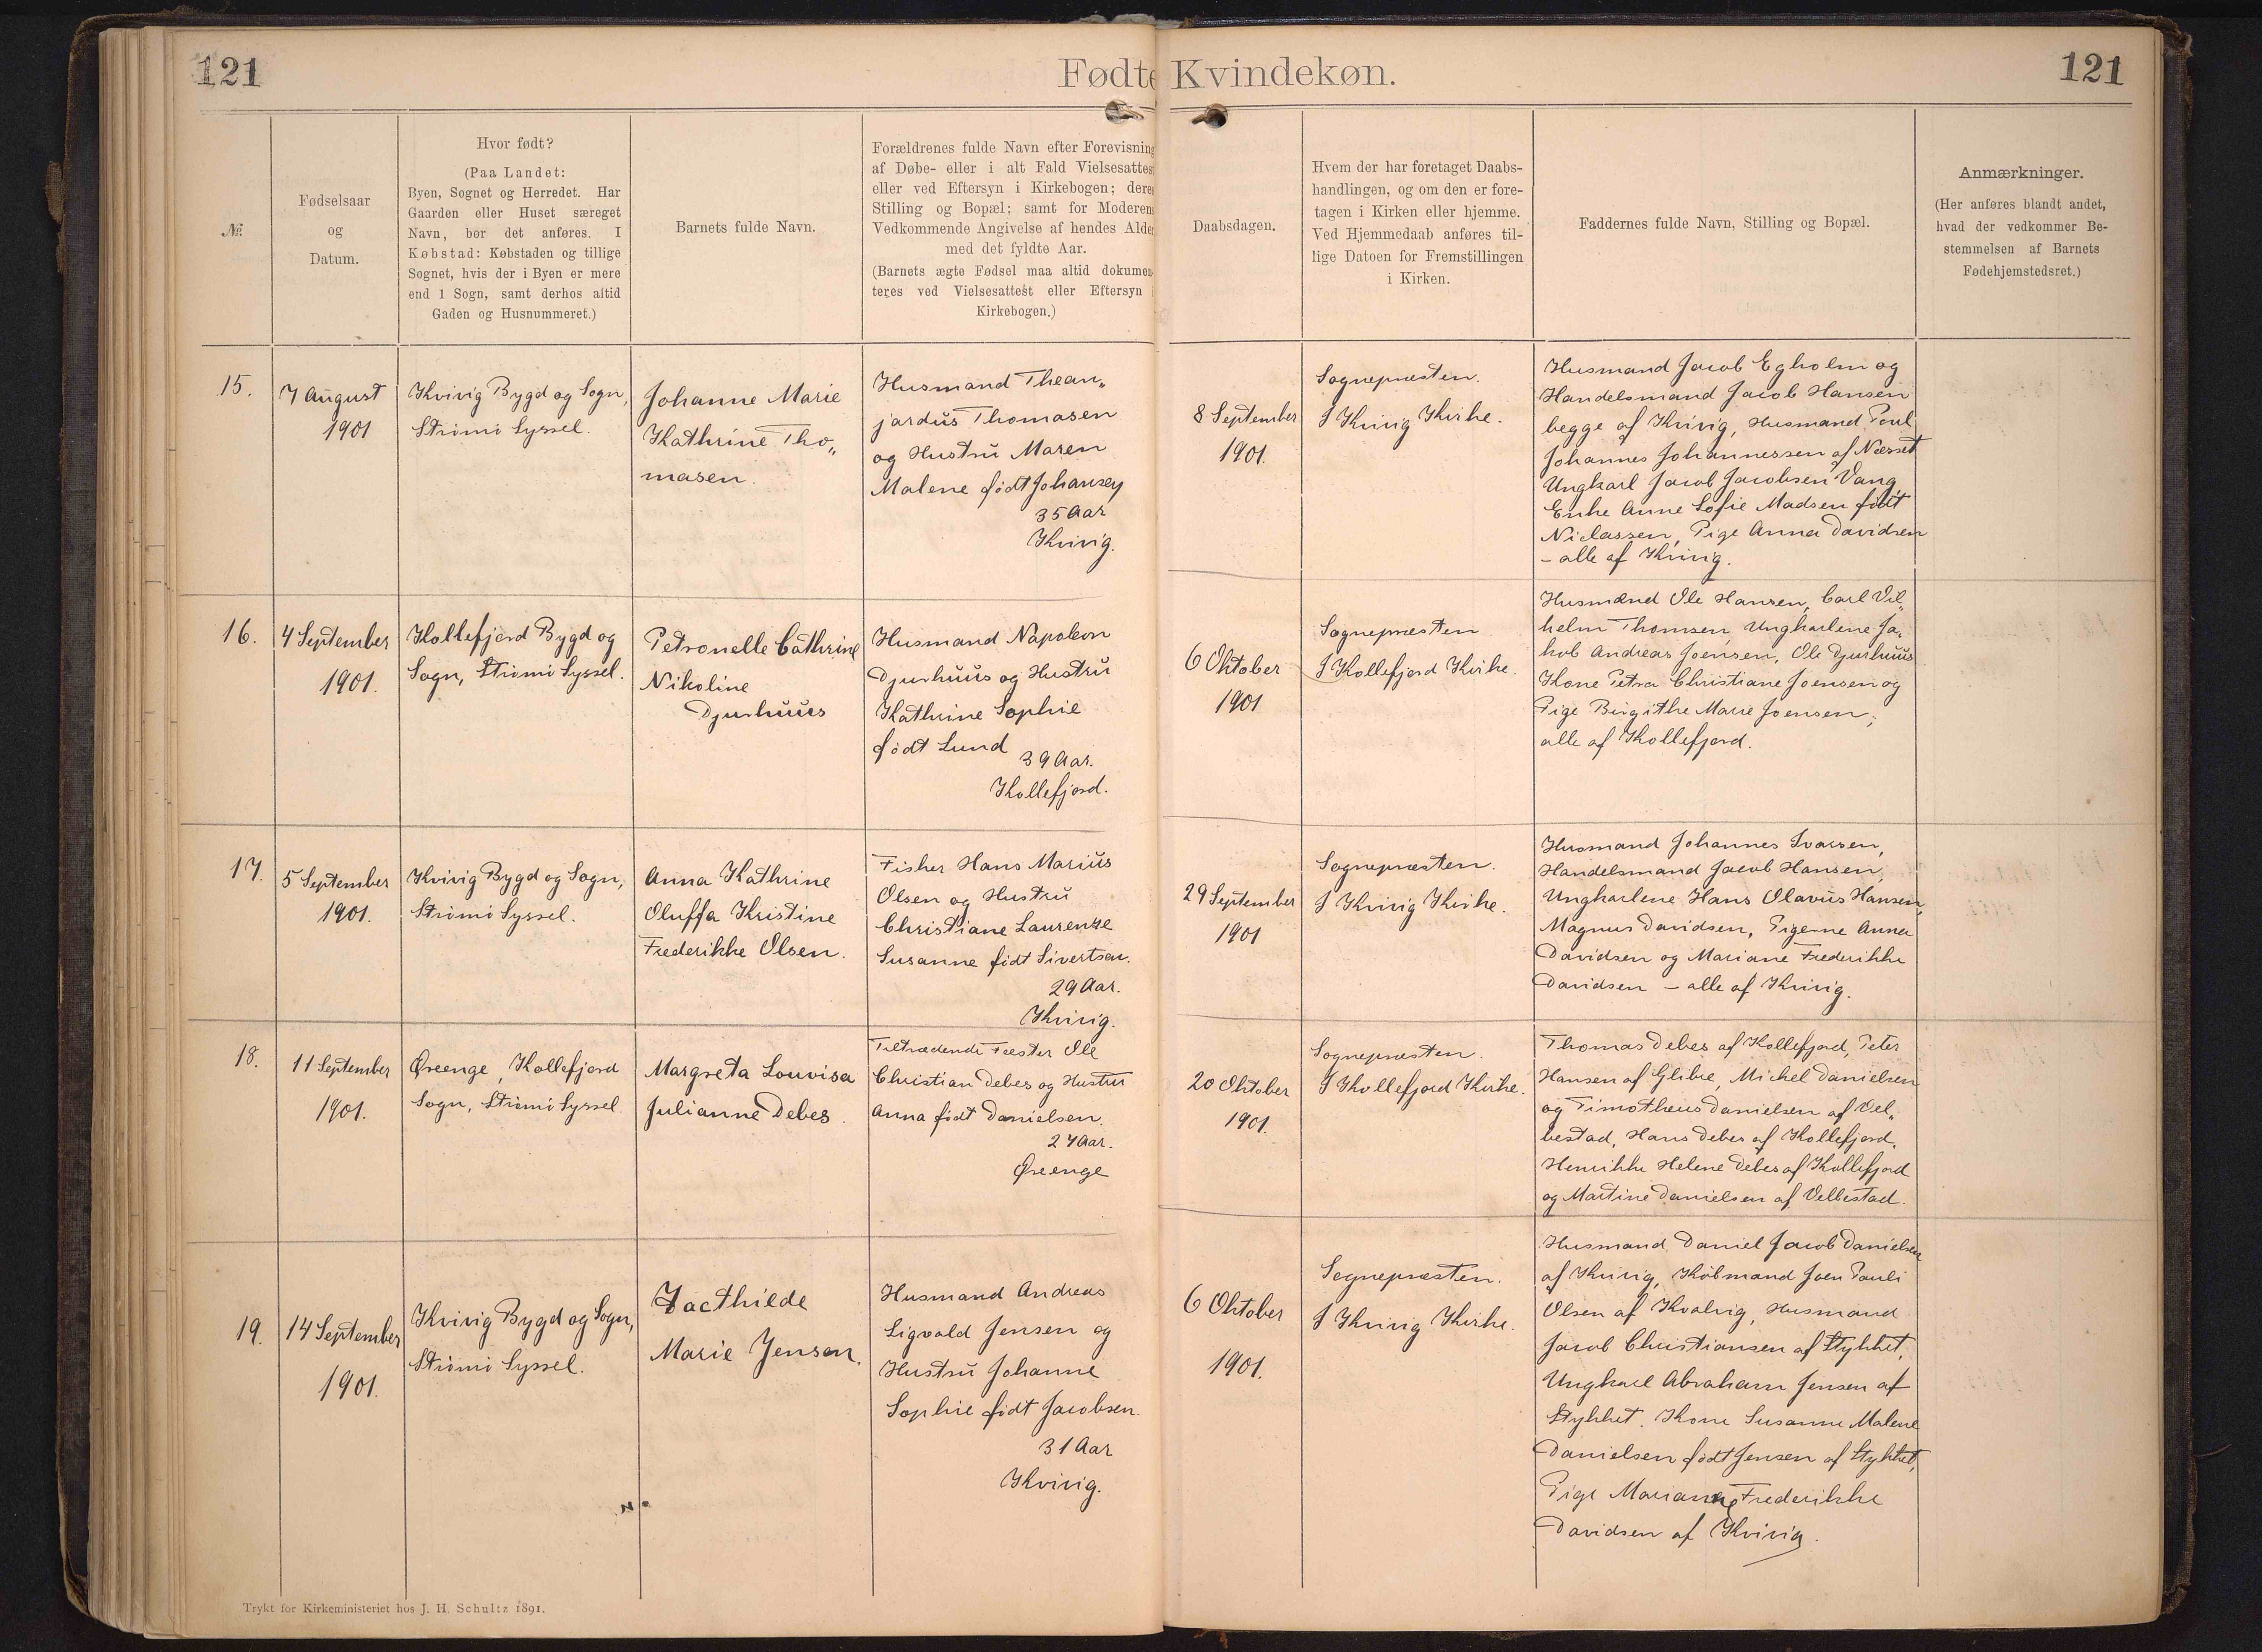 121
Fødte Kvindekøn.
121
№
Fødselsaar
og
Datum.
Hvor født?
(Paa Landet:
Byen, Sognet og Herredet. Har
Gaarden eller Huset særeget
Navn, bør det anføres. I
Købstad: Købstaden og tillige
Sognet, hvis der i Byen er mere
end 1 Sogn, samt derhos altid
Gaden og Husnummeret.)
Barnets fulde Navn.
Forældrenes fulde Navn efter Forevisning
af Døbe- eller i alt Fald Vielsesattest
eller ved Eftersyn i Kirkebogen; deres
Stilling og Bopæl; samt for Moderens
Vedkommende Angivelse af hendes Alder
med det fyldte Aar.
(Barnets ægte Fødsel maa altid dokumen-
teres ved Vielsesattest eller Eftersyn i
Kirkebogen.)
Daabsdagen.
Hvem der har foretaget Daabs-
handlingen, og om den er fore-
tagen i Kirken eller hjemme.
Ved Hjemmedaab anføres til-
lige Datoen for Fremstillingen
i Kirken.
Faddernes fulde Navn, Stilling og Bopæl.
Anmærkninger.
(Her anføres blandt andet,
hvad der vedkommer Be-
stemmelsen af Barnets
Fødehjemstedsret.)
15.
7 August
1901
Kvivig Bygd og Sogn,
Strømø Syssel.
Johanne Marie
Kathrine Tho„
masen.
Husmand Thean„
jardus Thomasen
og Hustru Maren
Malene født Johansen
35 Aar
Kvivig.
8 September
1901.
Sognepræsten.
I Kvivig Kirke.
Husmand Jacob Egholm og
Handelsmand Jacob Hansen
begge af Kvivig, Husmand Poul
Johannes Johannessen af Næsset
Ungkarl Jacob Jacobsen Vang
Enke Anne Sofie Madsen født
Niclassen, Pige Anna Davidsen
- alle af Kvivig.
16.
4 September
1901.
Kollefjord Bygd og
Sogn, Strømø Syssel.
Petronelle Cathrine
Nikoline
Djurhuus
Husmand Napoleon
Djurhuus og Hustru
Kathrine Sophie
født Lund
39 Aar.
Kollefjord.
6 Oktober
1901
Sognepræsten
I Kollefjord Kirke.
Husmænd Ole Hansen, Carl Vil„
helm Thomsen, Ungkarlene Ja„
kob Andreas Joensen, Ole Djurhuus
Kone Petra Christiane Joensen og
Pige Birgithe Marie Joensen,
alle af Kollefjord.
17.
5 September
1901.
Kvivig Bygd og Sogn,
Strømø Syssel.
Anna Kathrine
Oluffa Kristine
Frederikke Olsen.
Fisker Hans Marius
Olsen og Hustru
Christiane Laurenze
Susanne født Sivertsen.
29 Aar.
Kvivig.
29 September
1901
Sognepræsten.
I Kvivig Kirke.
Husmand Johannes Ivarsen,
Handelsmand Jacob Hansen,
Ungkarlene Hans Olavus Hansen,
Magnus Davidsen, Pigerne Anna
Davidsen og Mariane Frederikke
Davidsen - alle af Kvivig.
18.
11 September
1901.
Øreenge, Kollefjord
Sogn, Strømø Syssel.
Margreta Louvisa
Julianne Debes.
Tiltrædende Fæster Ole
Christian Debes og Hustru
Anna født Danielsen.
27 Aar.
Øreenge
20 Oktober
1901.
Sognepræsten.
I Kollefjord Kirke.
Thomas Debes af Kollefjord, Peter
Hansen af Glibre, Michel Danielsen
og Timotheus Danielsen af Vel„
bestad, Hans Debes af Kollefjord,
Henrikke Helene Debes af Kollefjord
og Martine Danielsen af Velbestad.
19.
14 September
1901.
Kvivig Bygd og Sogn,
Strømø Syssel.
Jacthilde
Marie Jensen.
Husmand Andreas
Sigvald Jensen og
Hustru Johanne
Sophie født Jacobsen.
31 Aar
Kvivig.
6 Oktober
1901.
Sognepræsten.
I Kvivig Kirke.
Husmand Daniel Jacob Danielsen
af Kvivig, Købmand Joen Pauli
Olsen af Kvalvig, Husmand
Jacob Christiansen af Stykket,
Ungkarl Abraham Jensen af
Stykket. Kone Susanne Malene
Danielsen født Jensen af Stykket,
Pige Marianne Frederikke
Davidsen af Kvivig.
Trykt for Kirkeministeriet hos J. H. Schultz 1891.